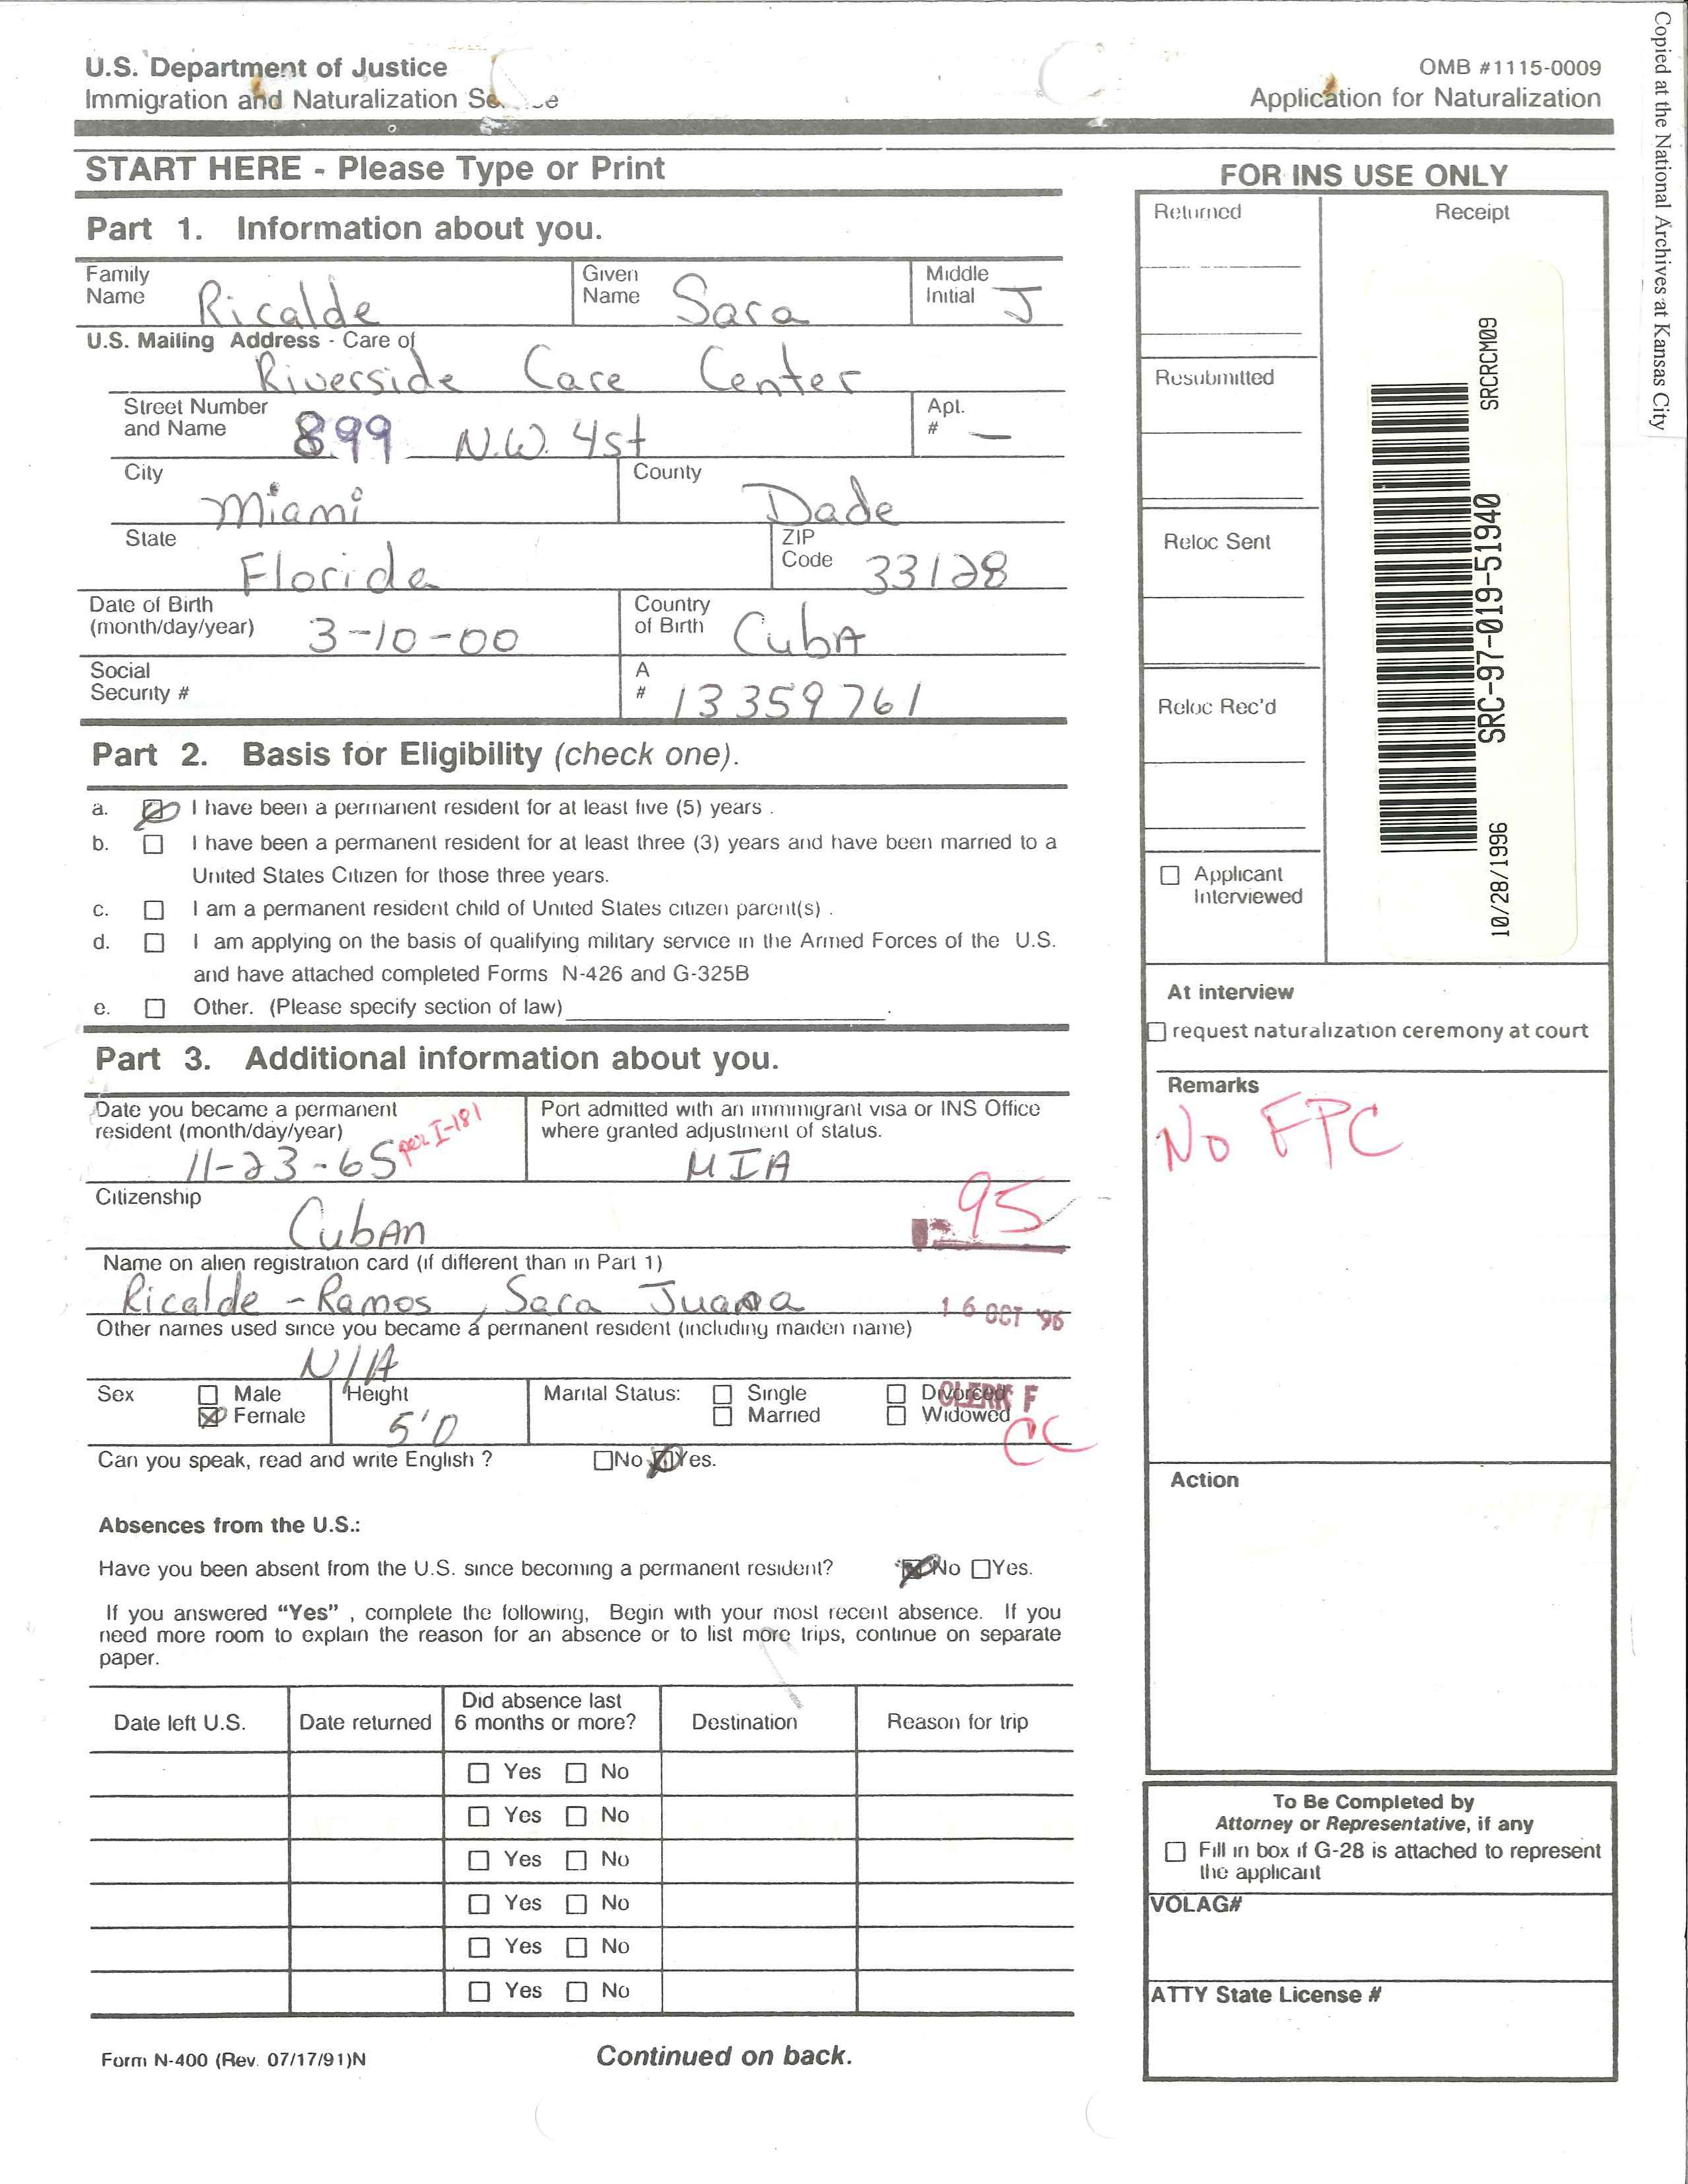 U.S. Department of Justice
Immigration and Naturalization
OMB #1115-0009
Application for Naturalization
START HERE - Please Type or Print
Part 1. Information about you.
Family Name Ricalde Given Name Sara Middle Initial J
U.S. Mailing Address - Care of
Riverside Care Center
Street Number and Name 899 N.W. 4st Apt. # —
City Miami County Dade
State Florida ZIP Code 33128
Date of Birth (month/day/year) 3-10-00 Country of Birth CubA
Social Security # A # 13359761
Part 2. Basis for Eligibility (check one).
a. I have been a permanent resident for at least five (5) years .
b. I have been a permanent resident for at least three (3) years and have been married to a
United States Citizen for those three years.
c. I am a permanent resident child of United States citizen parent(s) .
d. I am applying on the basis of qualifying military service in the Armed Forces of the U.S.
and have attached completed Forms N-426 and G-325B
e. Other. (Please specify section of law)
Part 3. Additional information about you.
Date you became a permanent resident (month/day/year) 11-23-65 per I-181
Port admitted with an immmigrant visa or INS Office where granted adjustment of status.
MIA
Citizenship
CubAn
95
Name on alien registration card (if different than in Part 1)
Ricalde - Ramos, Sara Juana
16 OCT '96
Other names used since you became a permanent resident (including maiden name)
N/A
Sex Male Female Height 5'0 Marital Status: Single Married Divorced Widowed
CLERK F
CC
Can you speak, read and write English ? No Yes.
Absences from the U.S.:
Have you been absent from the U.S. since becoming a permanent resident? No Yes.
If you answered "Yes" , complete the following, Begin with your most recent absence. If you
need more room to explain the reason for an absence or to list more trips, continue on separate
paper.
Date left U.S. Date returned Did absence last 6 months or more? Destination Reason for trip
Yes No
Yes No
Yes No
Yes No
Yes No
Yes No
Form N-400 (Rev. 07/17/91)N
Continued on back.
FOR INS USE ONLY
Returned
Receipt
Resubmitted
Reloc Sent
Reloc Rec'd
Applicant Interviewed
SRCRCM09
SRC-97-019-51940
10/28/1996
At interview
request naturalization ceremony at court
Remarks
No FPC
Action
To Be Completed by
Attorney or Representative, if any
Fill in box if G-28 is attached to represent
the applicant
VOLAG#
ATTY State License #
Copied at the National Archives at Kansas City